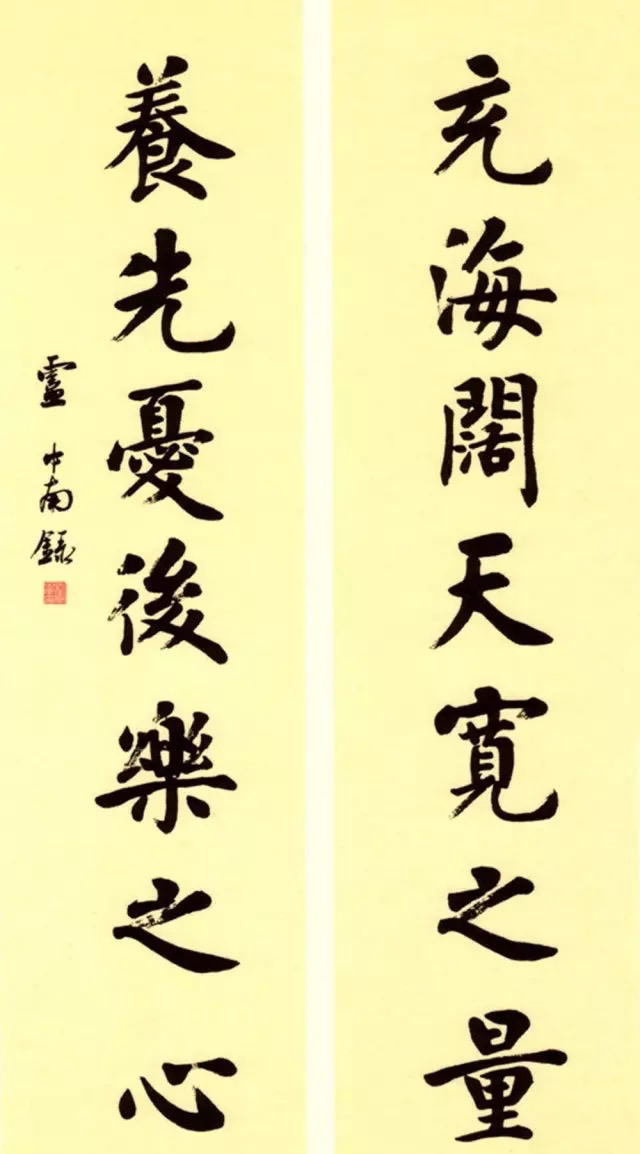 充海闊天寬之量
養先憂後樂之心
盧中南録